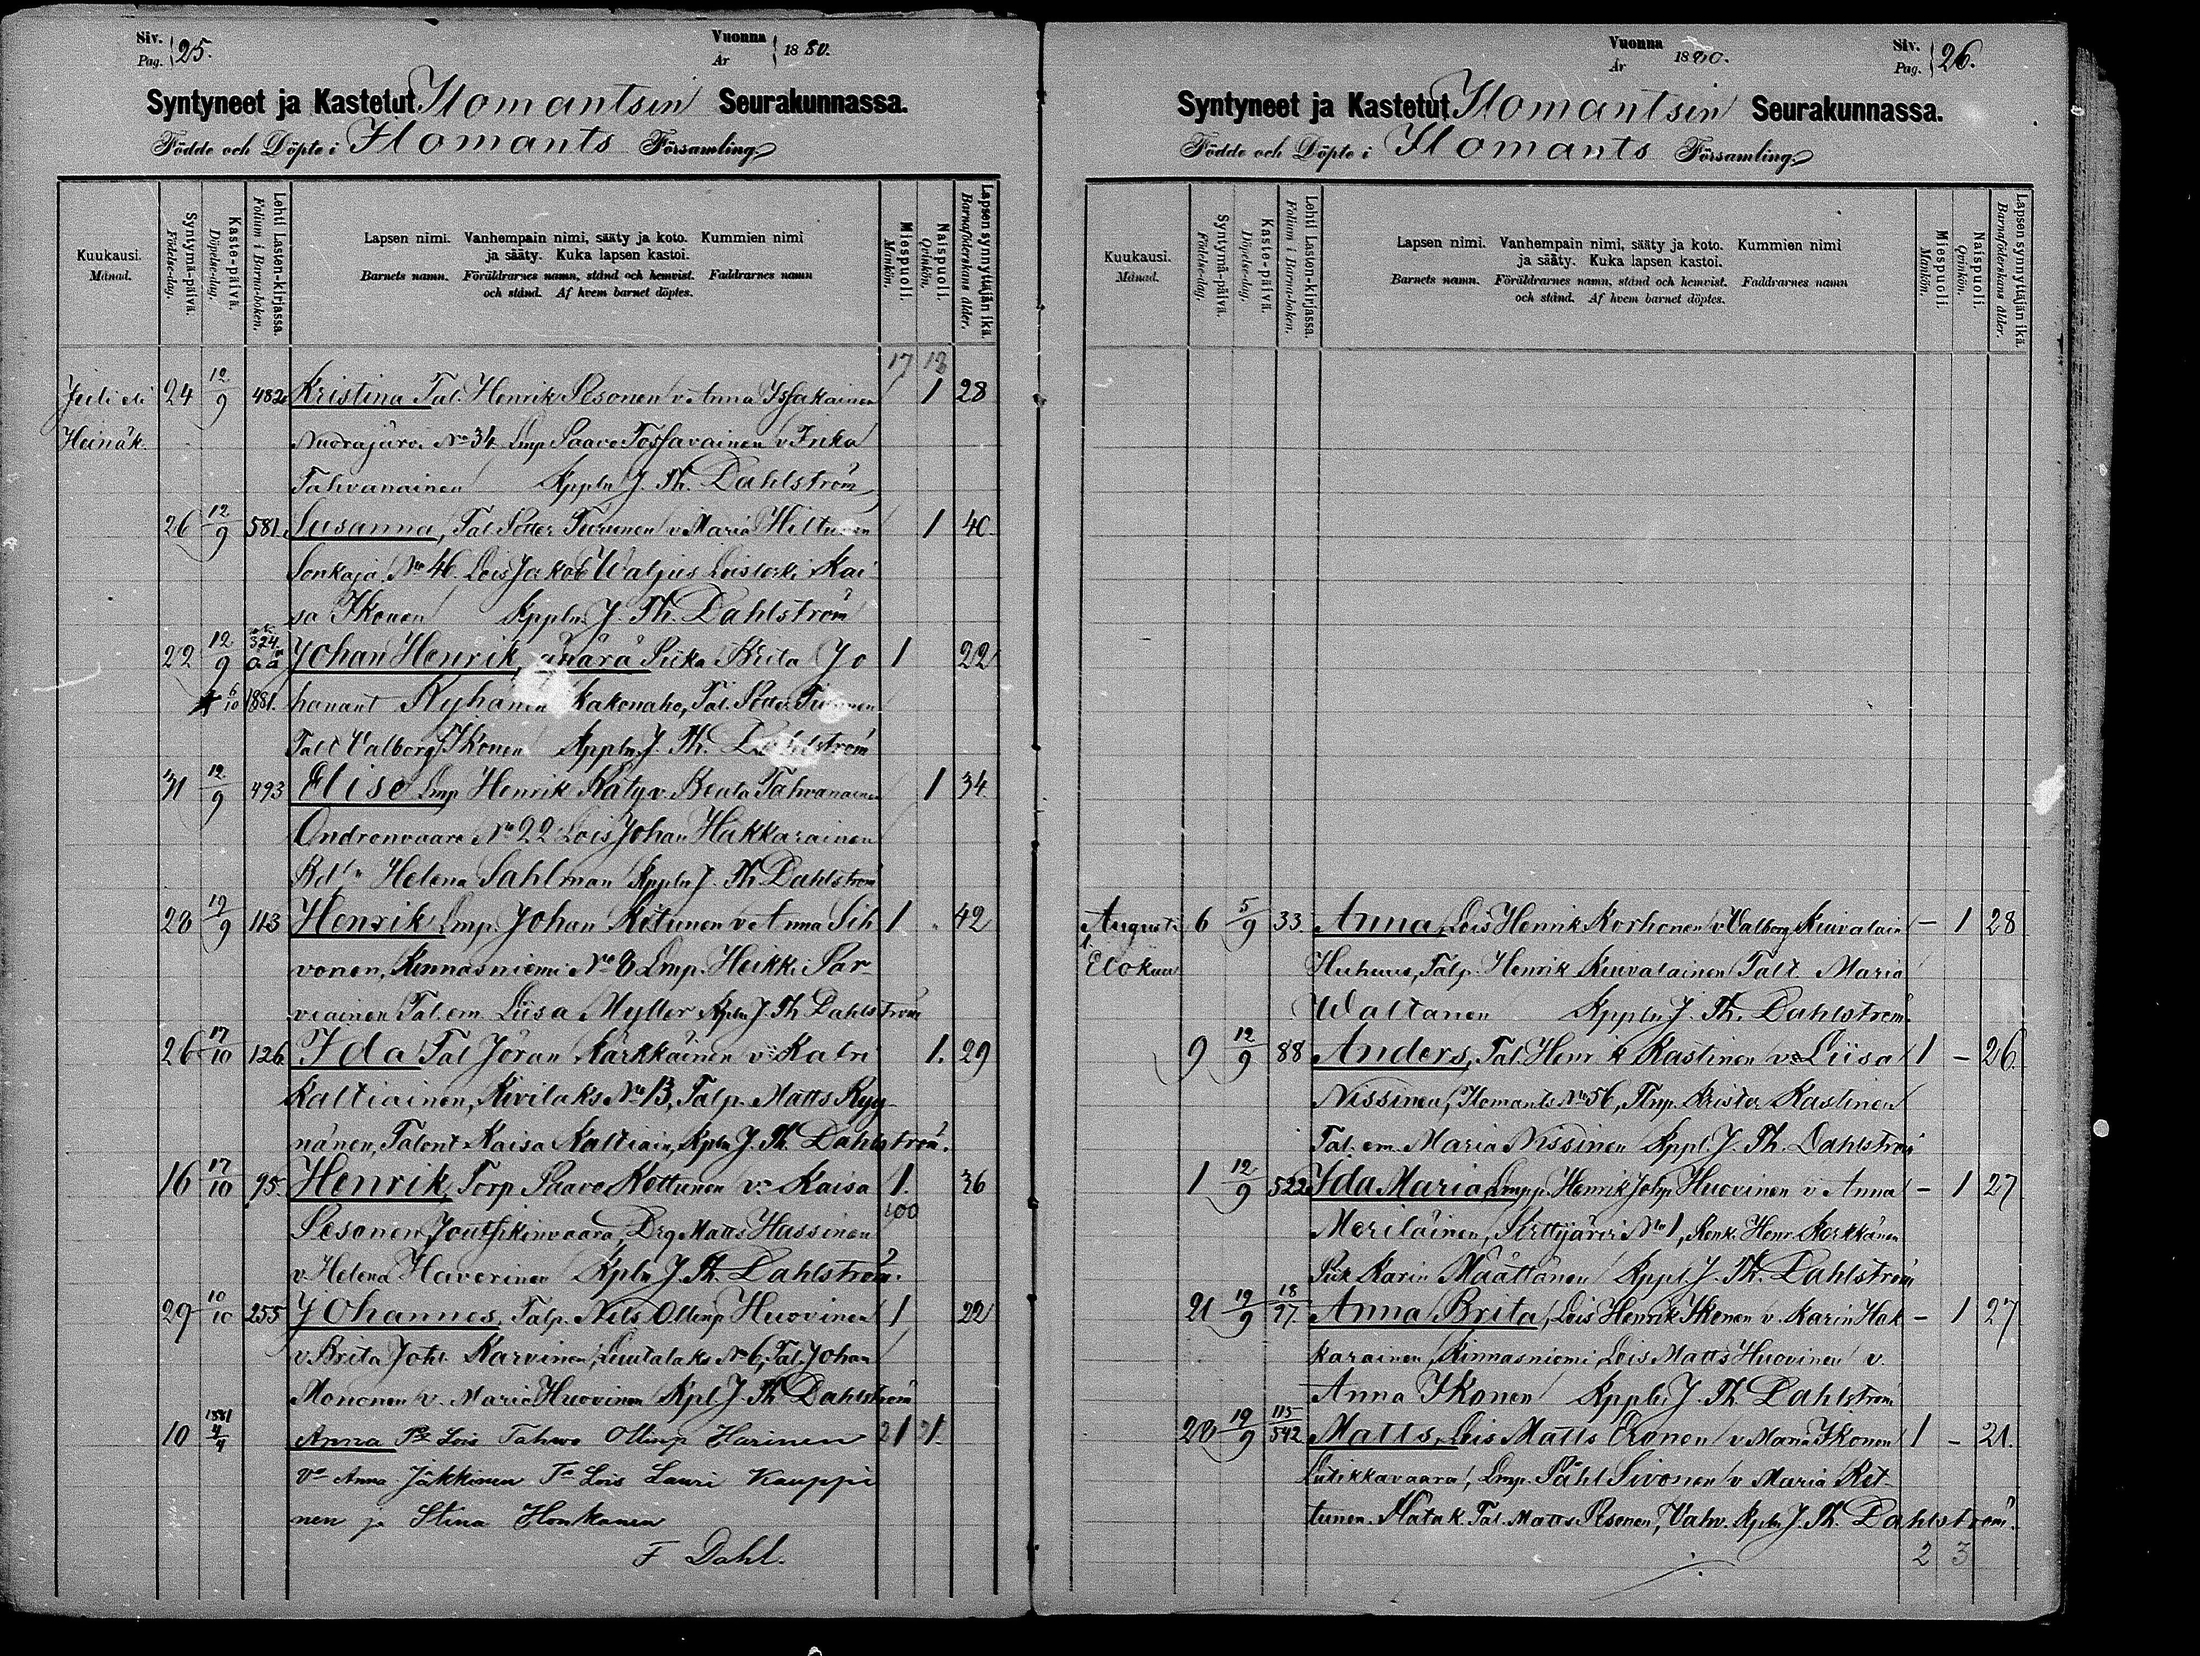 Siv. Pag. 25.
Vuonna År 1880.
Syntyneet ja Kastetut Ilomantsin Seurakunnassa.
Födde och Döpte i Ilomants Församling
Kuukausi. Månad.
Syntymä-päivä. Födelse-dag.
Kaste-päivä. Döpelse-dag.
Lehti Lasten-kirjassa. Folium i Barna-boken.
Lapsen nimi. Vanhempain nimi, sääty ja koto. Kummien nimi
ja sääty. Kuka lapsen kastoi.
Barnets namn. Föräldrarnes namn, stånd och hemvist. Faddrarnes namn
och stånd. Af hvem barnet döptes.
Miespuoli. Mankön.
Naispuoli. Qvinkön.
Lapsen synnyttäjän ikä. Barnaföderskans ålder.
17 18
Juli eli 24 12/9 482 Kristina Tal. Henrik Sesonen v. Anna Issakainen 1 28
Heinäk. Nuorajärvi No 34 Lmp Paavo Tossavainen v Inka
Tahvanainen Kppln J. Th. Dahlström
26 12/9 581 Susanna, Tal. Petter Turunen v Maria Hiltunen 1 40
Sonkaja No 46. Lois Jakob Waljus Loisleski Kai
sa Ikonen Kppln. J. Th. Dahlström
22 12/9 324 oä Johan Henrik, äpärä Piika Brita Jo 1 22
6/10 1881. hanant Ryhänen Kakonaho, Tal. Petter Turunen
Talt Valborg Ikonen Kppln J. Th. Dahlström
31 12/9 493 Elise Lmp Henrik Räty v. Beata Tahvanainen 1 34
Ondronvaara No 22 Lois Johan Hakkarainen
Helena Sahlman Kppln J. Th. Dahlström
28 12/9 113 Henrik Lmp. Johan Ketunen v Anna Sih 1 42
vonen, Kinnasniemi No 8 Lmp. Heikki Par
viainen Tal. em Liisa Myller Kpln J. Th Dahlström
26 17/10 126 Ida Tal Jöran Kärkkäinen v: Katri 1. 29
Kaltiainen, Kivilaks No 13, Talp. Matts Ryy
nänen, Talont. Kaisa Kaltiain, Kpln J. Th. Dahlström.
16 17/10 95. Henrik Torp Paavo Kettunen v: Kaisa 1. 36
100
Pesonen, Drg Matts Hassinen
v. Helena Haverinen Kpln J. Th. Dahlström.
29 10/10 255 Johannes, Talp. Nils Ollinp Huovinen 1 22
v. Brita Joht. Karvinen, Luutalaks No 6, Tal. Johan
Mononen v. Maria Huovinen Kpl J. Th Dahlström
10 1881 4/4 Anna Lois Tahvo Ollinp Harinen 21 21.
Va Anna Jäkkinen Lois Lauri Kauppi
nen ja Stina Honkanen
F Dahl.
Vuonna År 1880.
Siv. Pag. 26.
Syntyneet ja Kastetut Ilomantsin Seurakunnassa.
Födde och Döpte i Ilomants Församling
Kuukausi. Månad.
Syntymä-päivä. Födelse-dag.
Kaste-päivä. Döpelse-dag.
Lehti Lasten-kirjassa. Folium i Barna-boken.
Lapsen nimi. Vanhempain nimi, sääty ja koto. Kummien nimi
ja sääty. Kuka lapsen kastoi.
Barnets namn. Föräldrarnes namn, stånd och hemvist. Faddrarnes namn
och stånd. Af hvem barnet döptes.
Miespuoli. Mankön.
Naispuoli. Qvinkön.
Lapsen synnyttäjän ikä. Barnaföderskans ålder.
Augusti 6 5/9 33. Anna, Lois Henrik Korhonen v Valborg Kuivalain – 1 28
Elokuu Huhus, Talp. Henrik Kuivalainen Talt Maria
Waltanen Kppln J. Th. Dahlström.
9 12/9 88 Anders, Tal. Henrik Kastinen v: Liisa 1 – 26.
Nissinen, Ilomants No 56, Krister Kastinen
Tal. em. Maria Nissinen Kppl J. Th. Dahlström
1 12/9 522 Ida Maria, Lmpp. Henrik Johp. Huovinen v. Anna – 1 27
Meriläinen, No 1, Renk. Henr. Korkkänen
Piik Karin Määttänen Kppl. J. Th. Dahlström
21 19/9 18/27. Anna Brita, Lois Henrik Ikonen v. Karin Hak – 1 27
karainen, Kinnasniemi, Lois Matts Huovinen v.
Anna Ikonen Kppln J. Th Dahlström
20 19/9 115/542 Matts, Lois Matts Eronen v Maria Ikonen 1 – 21.
Lutikkavaara, Lmp. Påhl Sivonen v Maria Ket
tunen. Tal. Matts Pesonen, Vahv. Kpln J. Th. Dahlström.
2 3